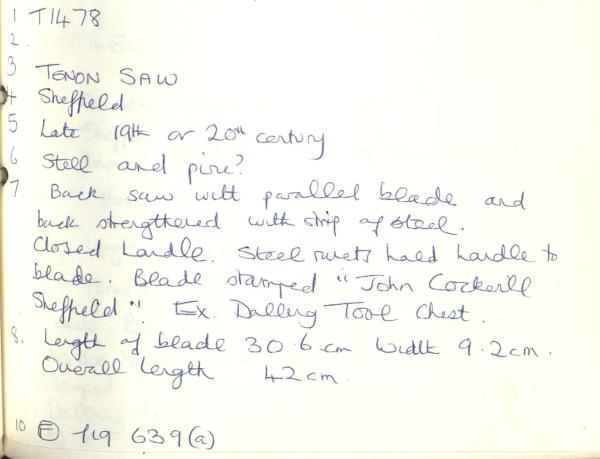 1 T1478
2.
3 TENON SAW
4 Sheffield
5 Late 19th or 20th century
6 Steel and pine?
7. Back saw with parallel blade and
back strengthened with strip of steel.
Closed handle. Steel rivets hold handle to
blade. Blade stamped "John Cockerill
Sheffield". Ex. Dalling Tool Chest.
8. Length of blade 30.6 cm Width 9.2 cm.
Overall length 42 cm.
10 F 719 639(a)